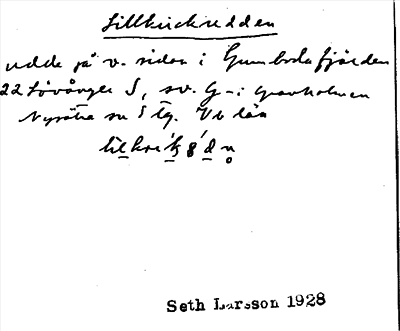 Lillkrickudden
udde på v. sidan i Gumbodafjärden
22 Lövånger S, sv. G-i Gravholmen
Nysätra sn Vb län
Seth Larsson 1928